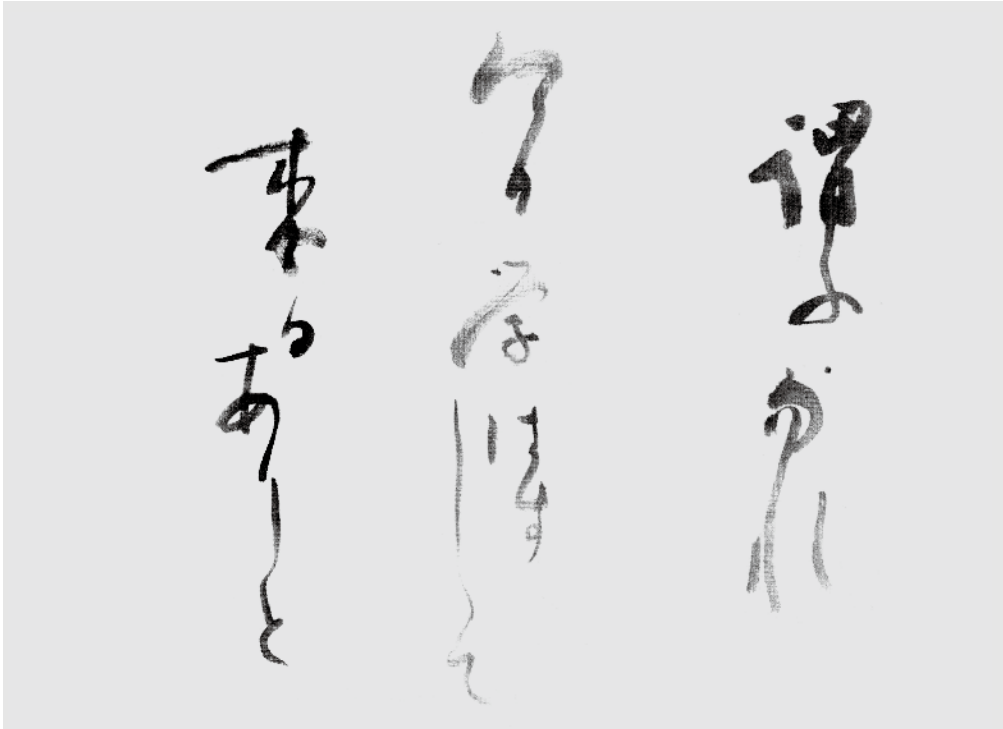 謂ふ勿れ
今日学はすして
来日ありと